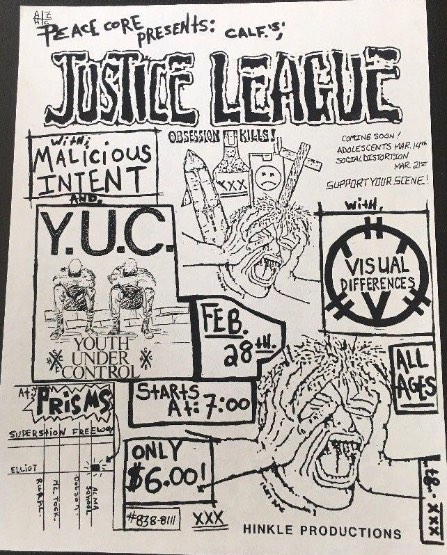 PEACE CORE PRESENTS: CALF.'S;
JUSTICE LEAGUE
OBSESSION KILLS!
XXX
COMING SOON!
ADOLESCENTS MAR. 14th
SOCIAL DISTORTION
MAR. 21st
SUPPORT YOUR SCENE!
WITH;
MALICIOUS
INTENT
AND,
Y.U.C.
YOUTH
UNDER
CONTROL
WITH,
VISUAL
DIFFERENCES
V
FEB.
28TH.
ALL
AGES
STARTS
At: 7:00
At:
PRISMS
SUPERSTION FREEWAY
ELLIOT
RURAL.
Mc.TOCK.
DOBSON.
ALMA
SCHOOL
ONLY
$6.00!
#838-8111
XXX
HINKLE PRODUCTIONS
XXX